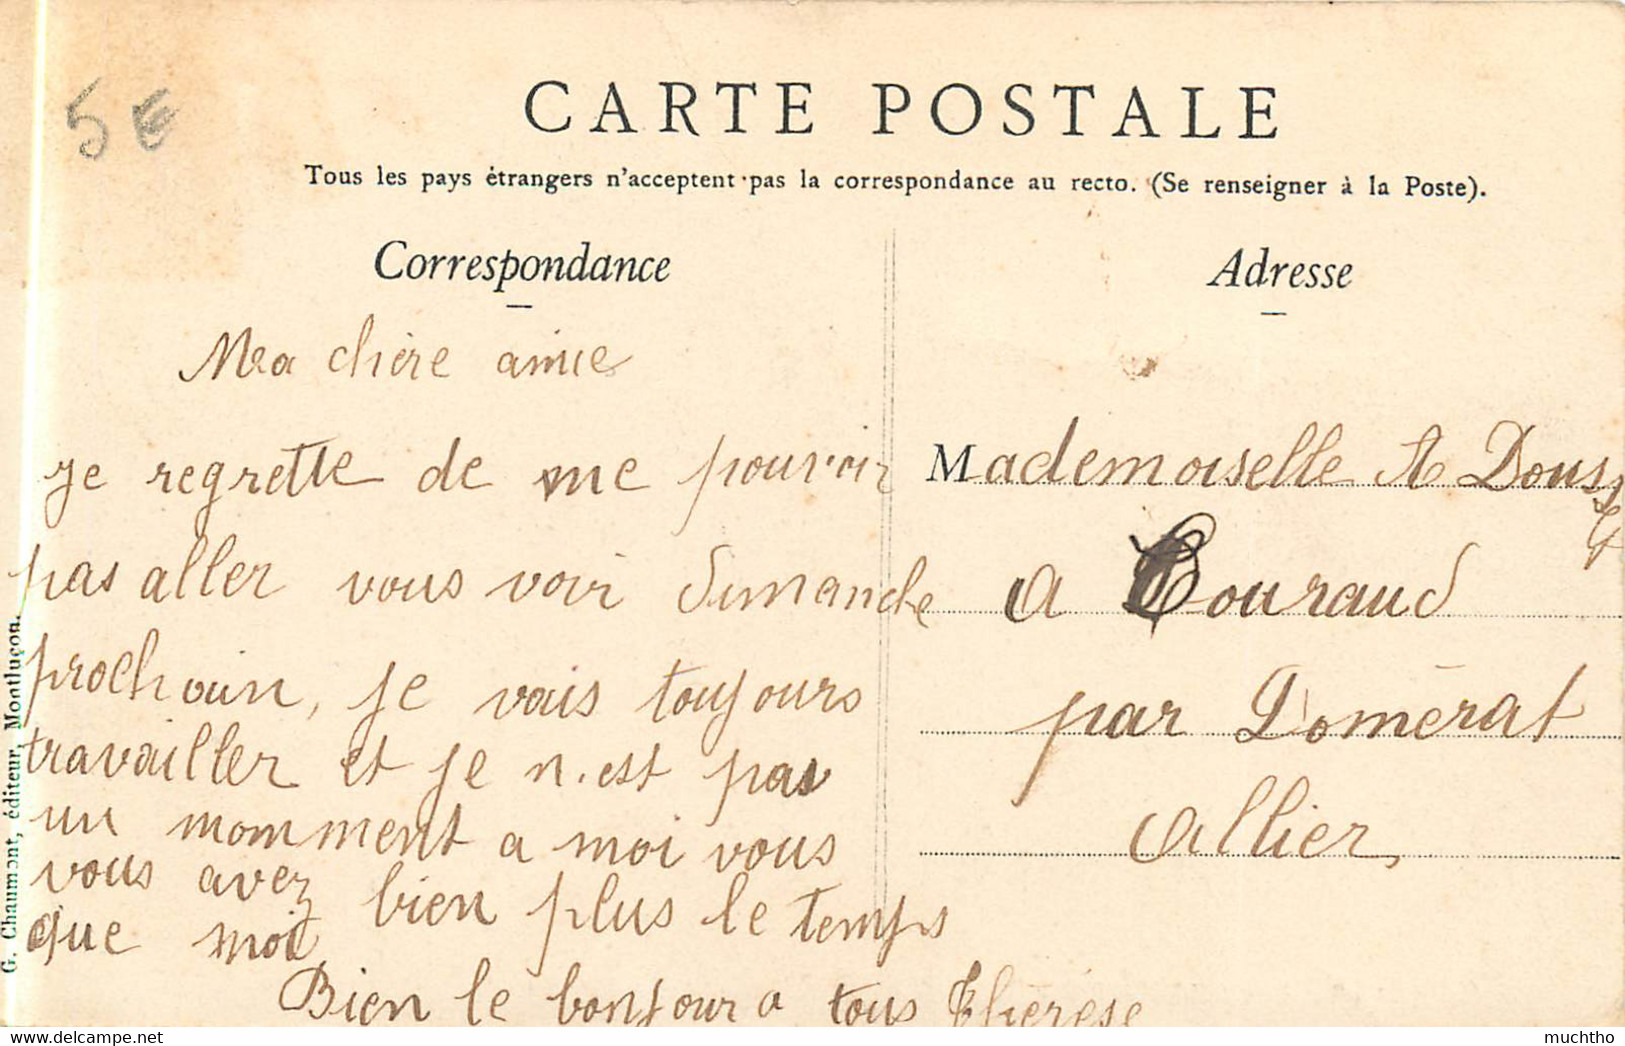 5 €
CARTE POSTALE
Tous les pays étrangers n'acceptent pas la correspondance au recto. (Se renseigner à la Poste).
Correspondance
Ma chère amie
je regrette de me pouvoir
pas aller vous voir dimanche
prochain, je vais toujours
travailler et je n'est pas
un momment a moi vous
vous avez bien plus le temps
que moi
Bien le bonjour a tous Thérèse
Adresse
Mademoiselle A
a Couraud
par Domérat
Allier,
G. Chaumont, éditeur, Montluçon.
delcampe.net
muchtho